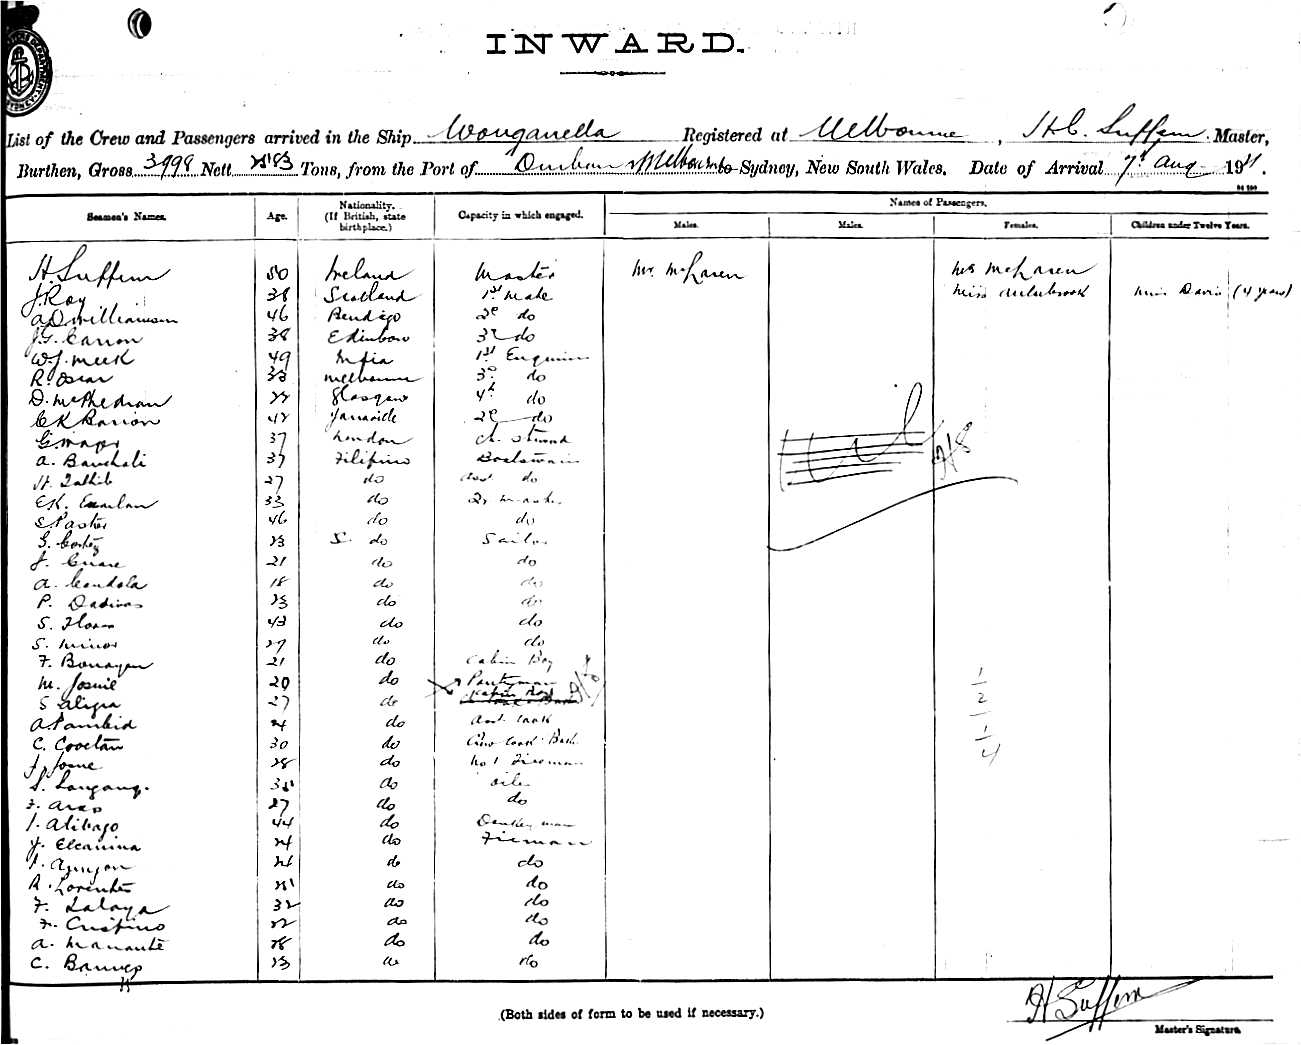 INWARD.
List of the Crew and Passengers arrived in the Ship Wonganella Registered at Melbourne, H.C. Suffern Master,
Burthen, Gross 3998 Nett Tons, from the Port of Durban & Melbourne to Sydney, New South Wales. Date of Arrival 7th Aug 1911.
Seamen's Names. Age. Nationality. (If British, state birthplace.) Capacity in which engaged. Names of Passengers.
Males. Males. Females. Children under Twelve Years.
H. Suffern 50 Ireland Master Mr. McLaren Mrs McLaren
J. Roy 38 Scotland 1st Mate Miss Miss Davis (4 years)
A.D. Williamson 46 Bendigo 2d do
J.G. Carron 38 Edinboro 3d do
W.J. Meek 49 India 1st Engineer
R. Oscar 33 Melbourne 3d do
D. McPhedran 22 Glasgow 4th do
C K Barron 42 Yarraville 2d do
G. Major 37 London Ch. Steward
A. Bauchali 37 Filipino Boatswain
27 do do
E.K. 33 do
E Pastor 46 do do
G. Cortez 23 S. do Sailor
J. 21 do do
A. Candola 18 do do
P. Dadivas 23 do do
S. Flores 43 do do
S. Minor 27 do do
F. Bonayon 21 do Cabin Boy
M. Josue 20 do Pantryman
S Aligra 27 do Cabin Boy
A. Pambid 24 do Asst. Cook
C. Cooctan 30 do Crew Cook
J. Josue 28 do No 1 Fireman
S. 35 do Oiler
F. Aras 27 do do
I. Alibago 44 do Donkeyman
Y. Elcanina 24 do Fireman
24 do do
R. Lorentes do do
F. Lalaya 32 do do
F. Crispino 22 do do
A. Manante 28 do do
C. 23 do do
Nil
1
2
1
4
(Both sides of form to be used if necessary.)
H Suffern
Master's Signature.